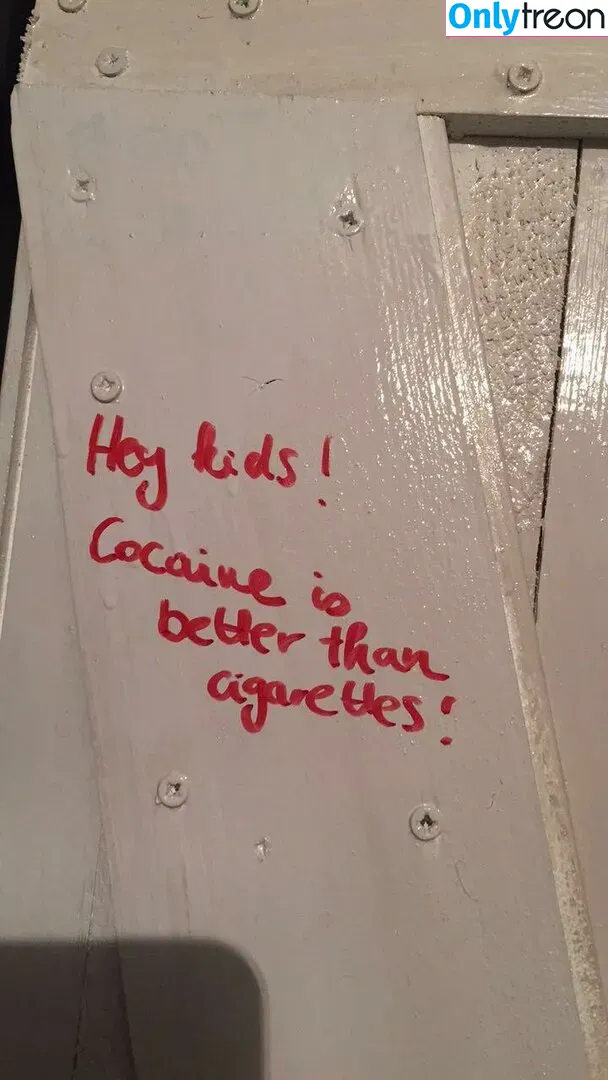 Onlytreon
Hey kids!
Cocaine is
better than
cigarettes!